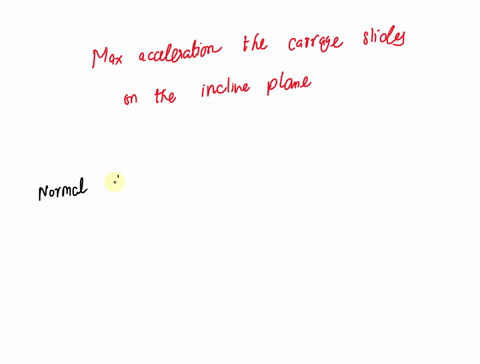 Max acceleration the carrage slides
on the incline plane
Normal